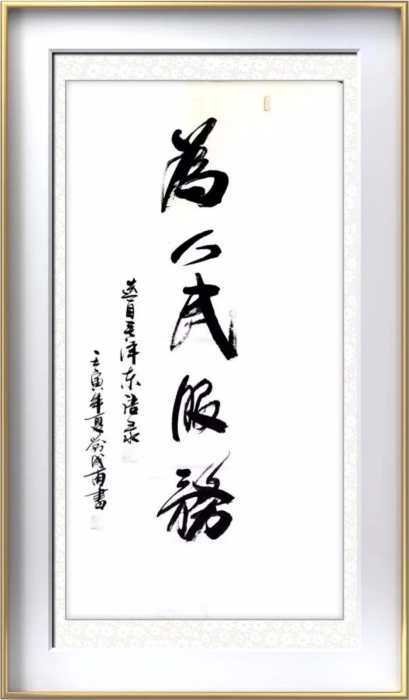 為人民服務
选自毛泽东语录
壬寅年夏 書